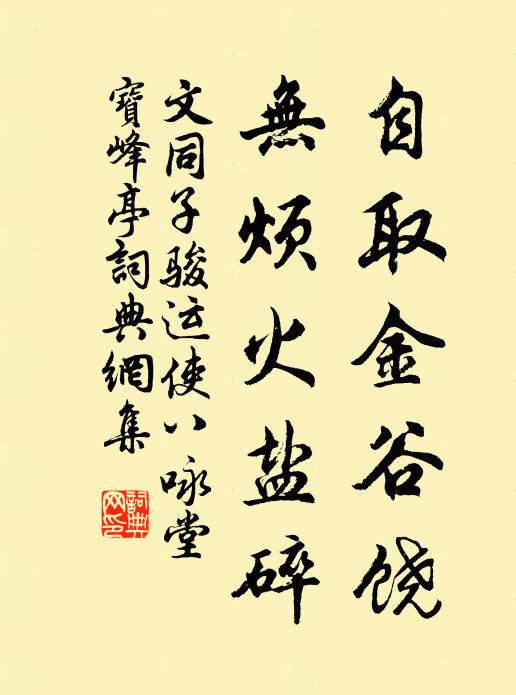 自取金谷饶
無烦火盐碎
文同子骏运使八咏堂
寶峰亭詞典網集
詞典网印